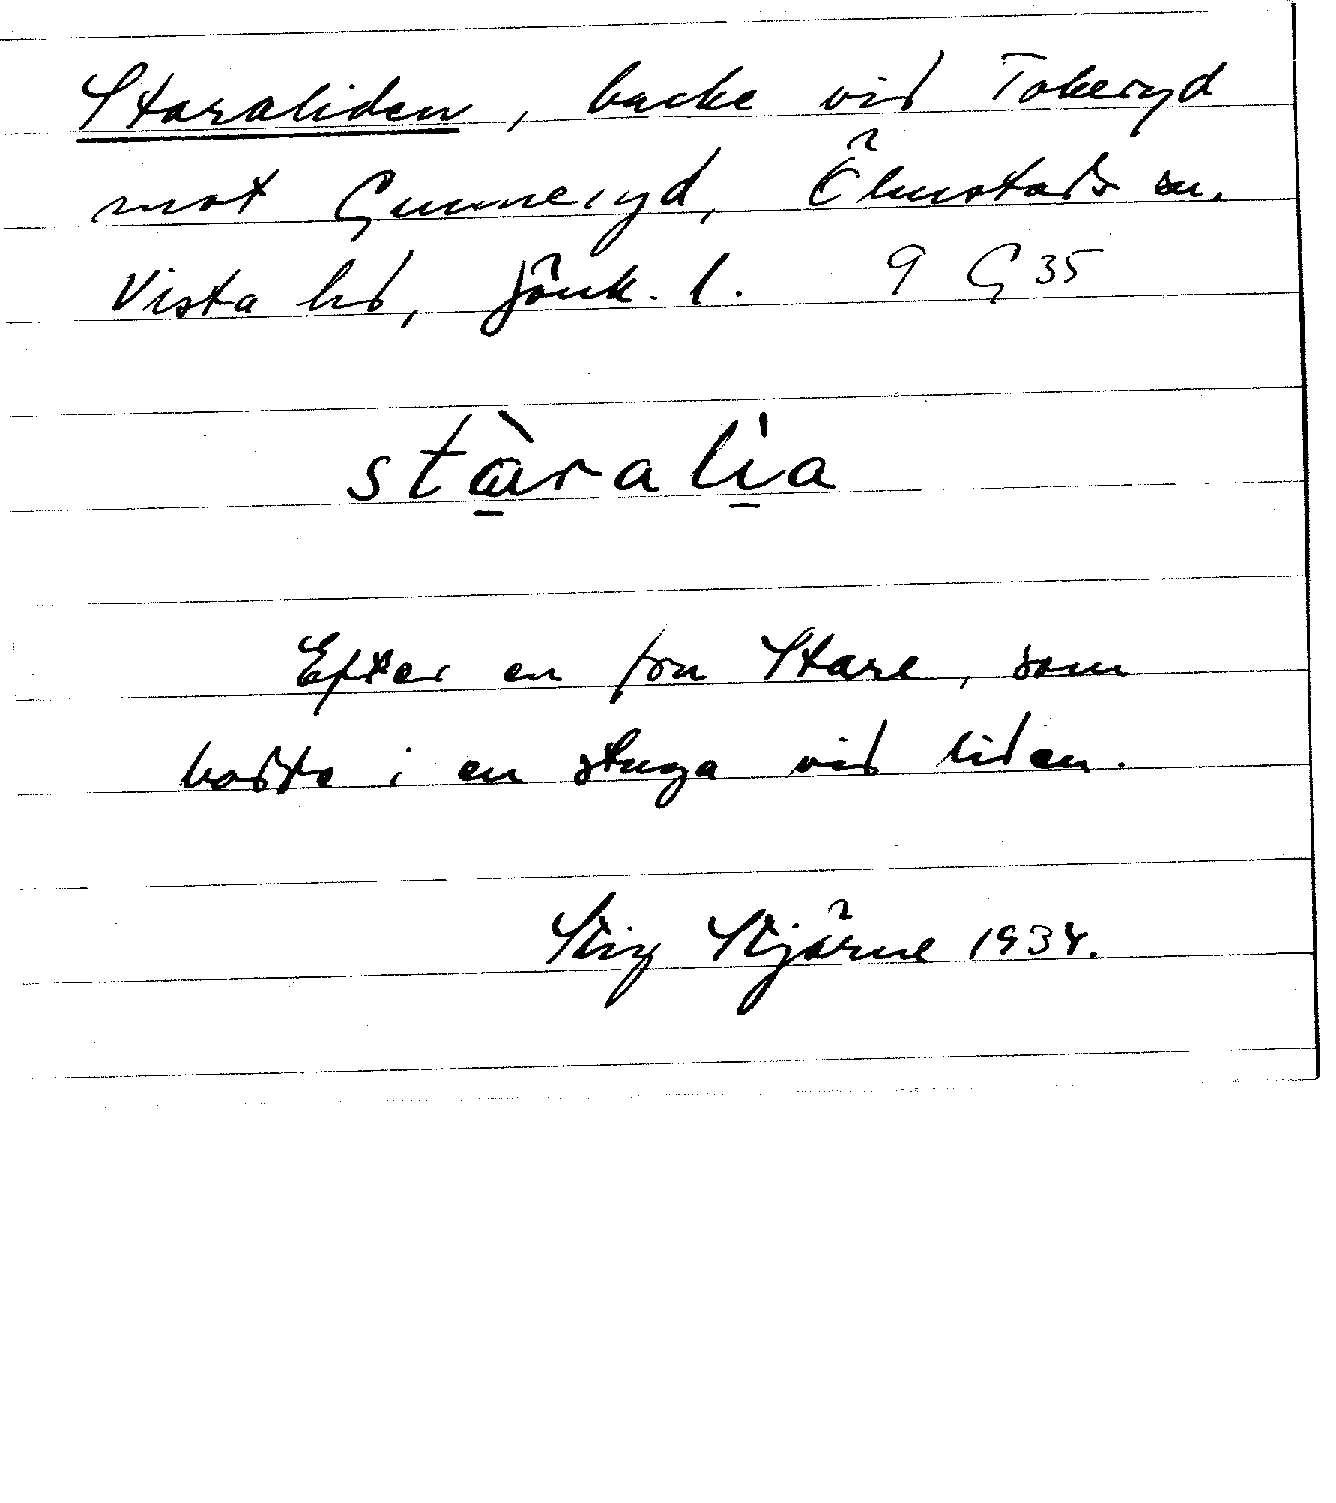 Staraliden, backe vid Tokeryd
mot Gunneryd, Ölmstads sn.
Vista hd, Jönk. l. 9 G 35
stàralìa
Efter en fru Stare, som
bodde i en stuga vid liden.
Stig Stjärne 1934.